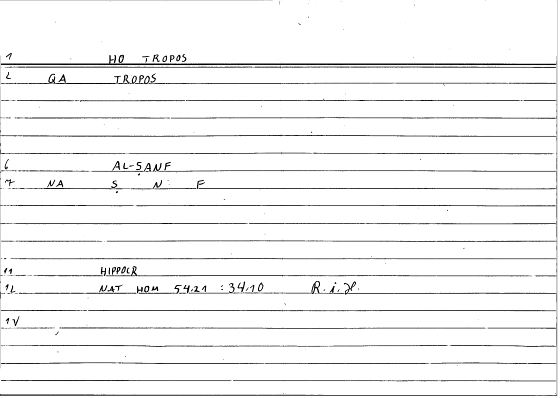 1 HO TROPOS
2 QA TROPOS
6 AL-ṢANF
7 NA Ṣ N F
11 HIPPOCR
12 NAT HOM 54.21 : 34.10 R. i. H.
1V